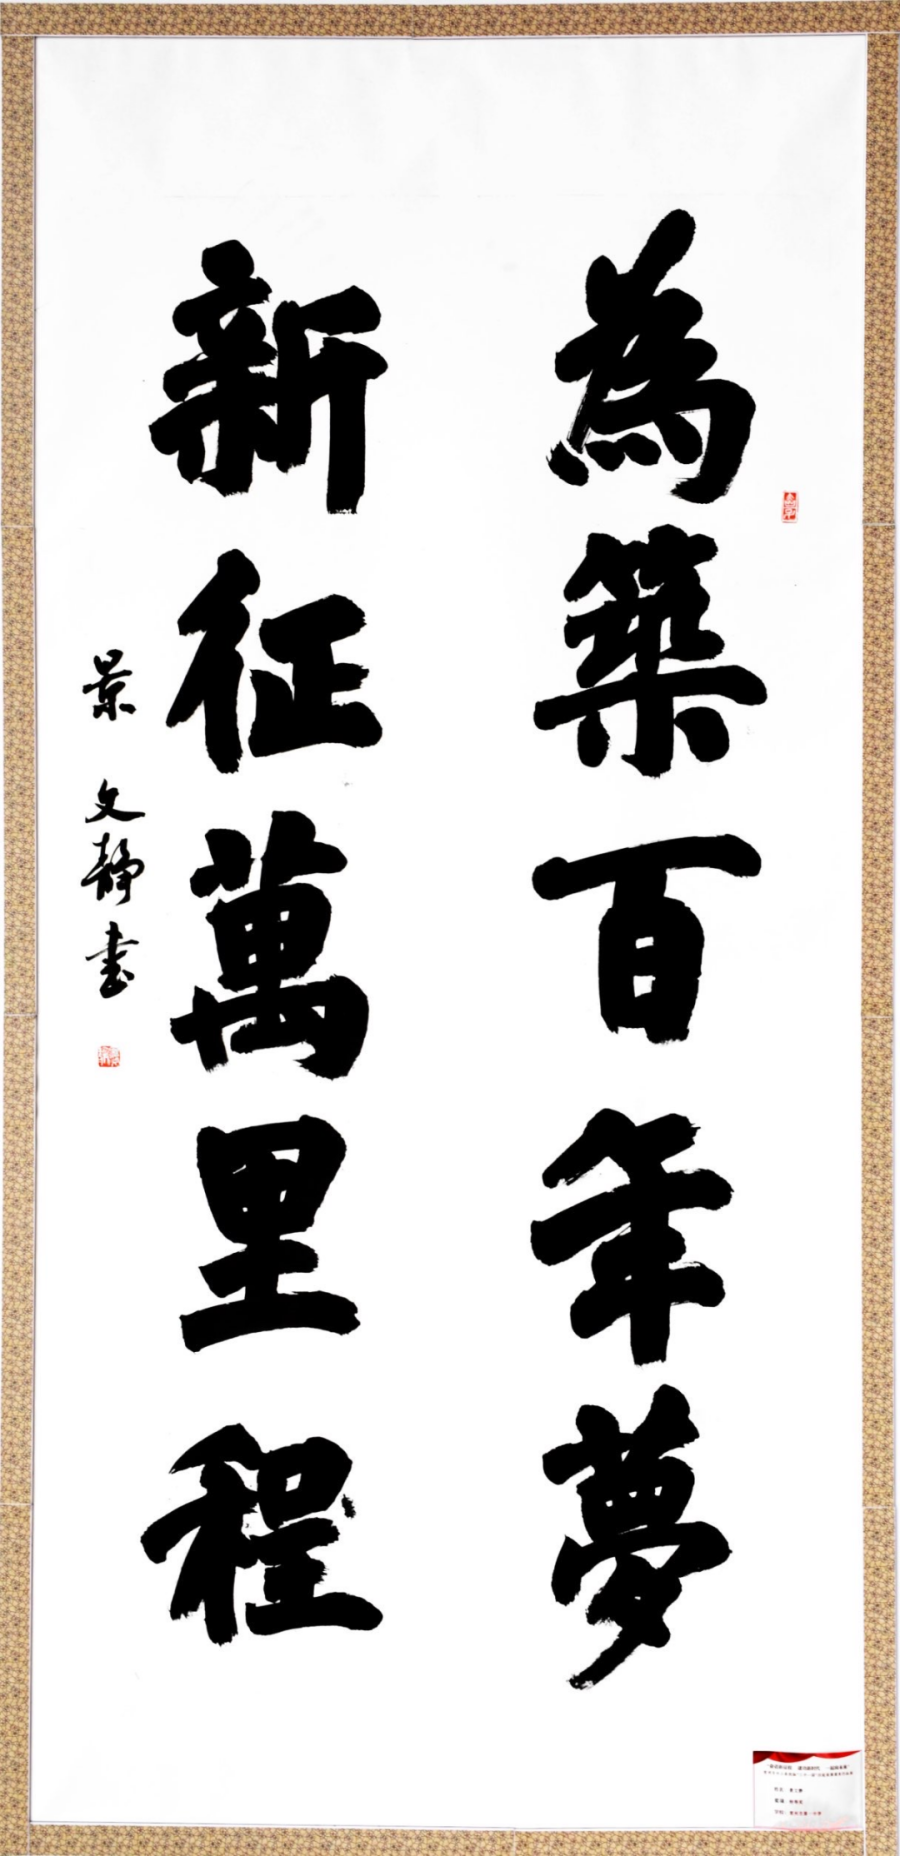 為築百年夢
新征萬里程
景文静书